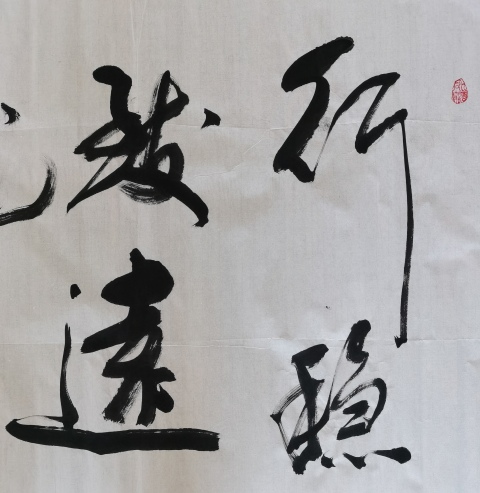 行稳
致远